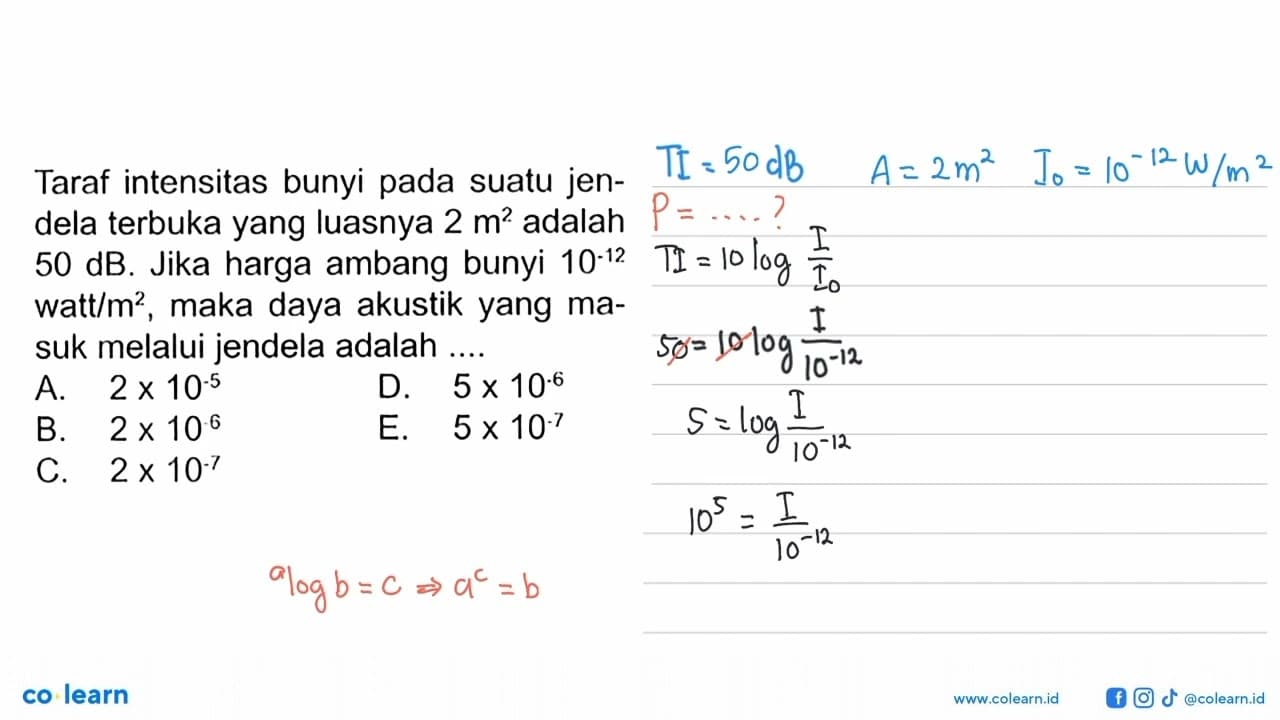 Taraf intensitas bunyi pada suatu jen-
dela terbuka yang luasnya 2 m² adalah
50 dB. Jika harga ambang bunyi 10⁻¹²
watt/m², maka daya akustik yang ma-
suk melalui jendela adalah ....
A. 2 x 10⁻⁵ D. 5 x 10⁻⁶
B. 2 x 10⁻⁶ E. 5 x 10⁻⁷
C. 2 x 10⁻⁷
ᵃlog b = c ⇒ aᶜ = b
TI = 50 dB A = 2 m² I₀ = 10⁻¹² W/m²
P = ....?
TI = 10 log I/I₀
50 = 10 log I/10⁻¹²
5 = log I/10⁻¹²
10⁵ = I/10⁻¹²
co learn
www.colearn.id @colearn.id